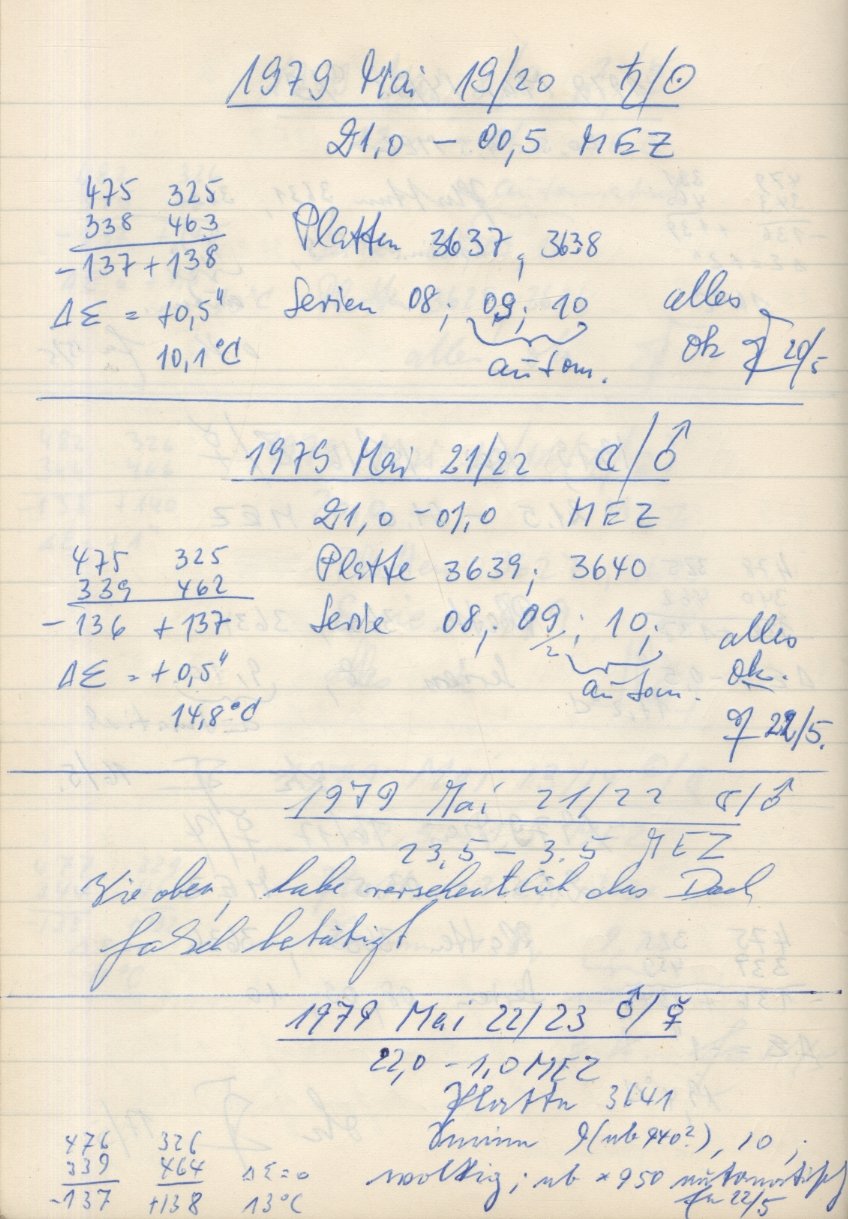 1979 Mai 19/20 ♄/☉
21,0 – 00,5 MEZ
475 325
338 463
-137 +138
Platten 3637, 3638
ΔΣ = +0,5"
Serien 08, 09, 10
alles
10,1°C
autom.
ok 20/5
1979 Mai 21/22 ☾/♂
21,0 – 01,0 MEZ
475 325
339 462
-136 +137
Platte 3639, 3640
Serie 08, 09, 10,
alles
ΔΣ = +0,5"
autom.
ok.
14,8°C
22/5.
1979 Mai 21/22 ☾/♂
23,5 – 3.5 MEZ
Wie oben, habe versehentlich das Dach
falsch betätigt
1979 Mai 22/23 ♂/☿
22,0 – 1,0 MEZ
Platte 3641
476 326
339 464
-137 +138
ΔΣ = 0
13°C
9 (ab 940?), 10,
wolkig; ab * 950 automatisch
22/5